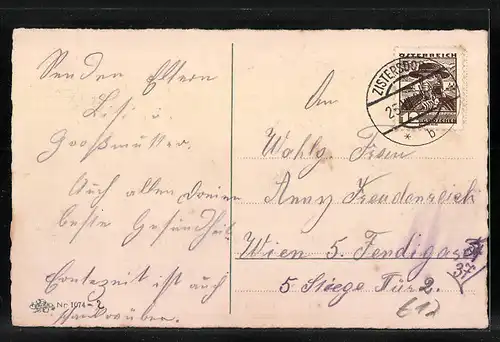 Senden Eltern
Lisi u
Großmutter.
Auch allen Deinen
beste Gesundheit
ist auch
vorüber.
Nr. 1074-2
ÖSTERREICH
ZISTERSDO
b
An
Wohlg. Frau
Anny Freudenreich
Wien 5. Fendigasse
37
5 Stiege Tür 2